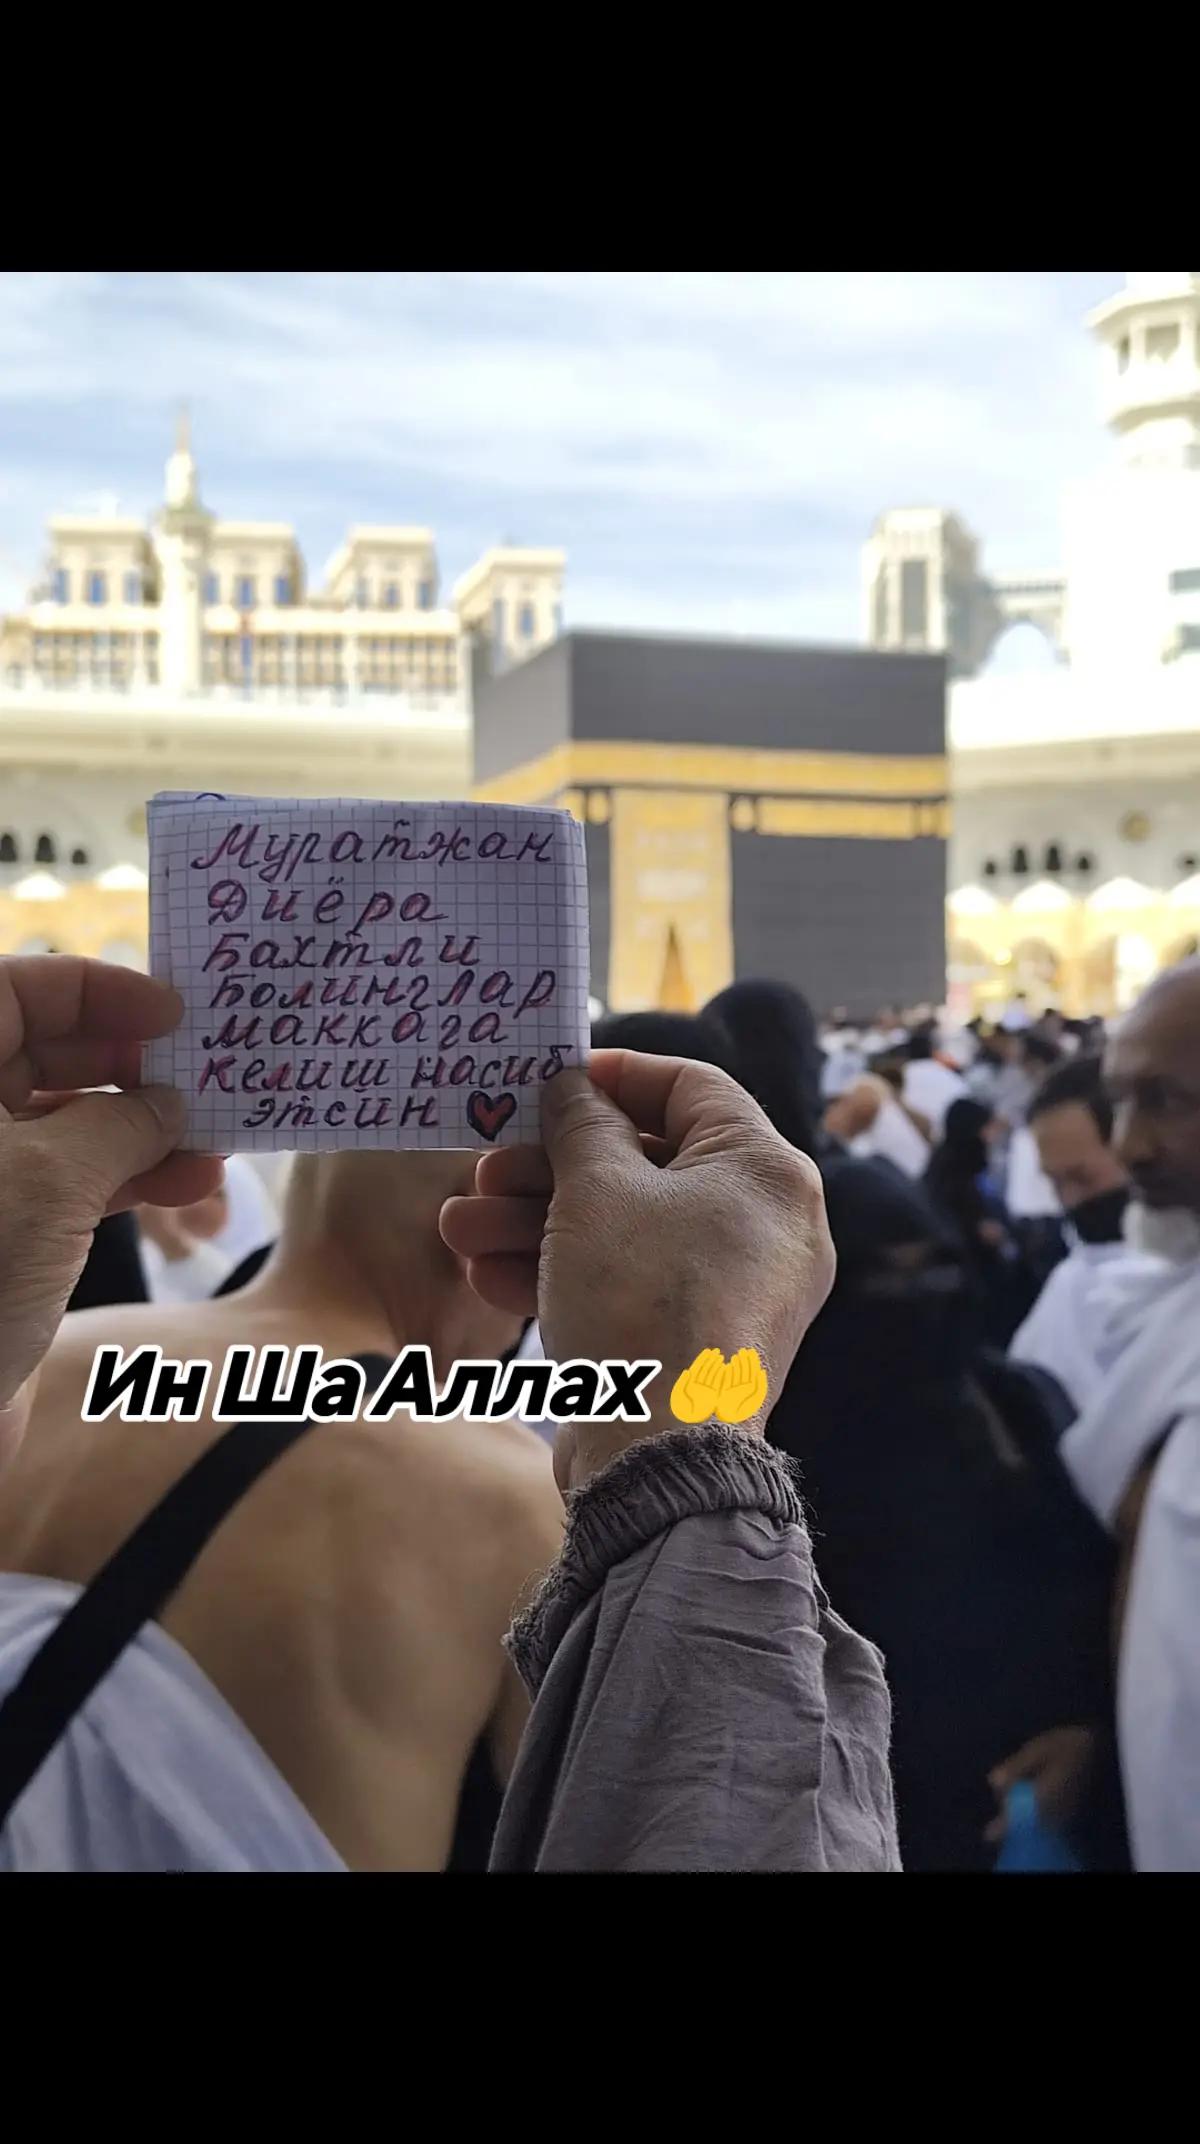 Муратжан
Диёра
Бахтли
Болинглар
Маккага
Келиш насиб
этсин ❤
Ин Ша Аллах 🤲